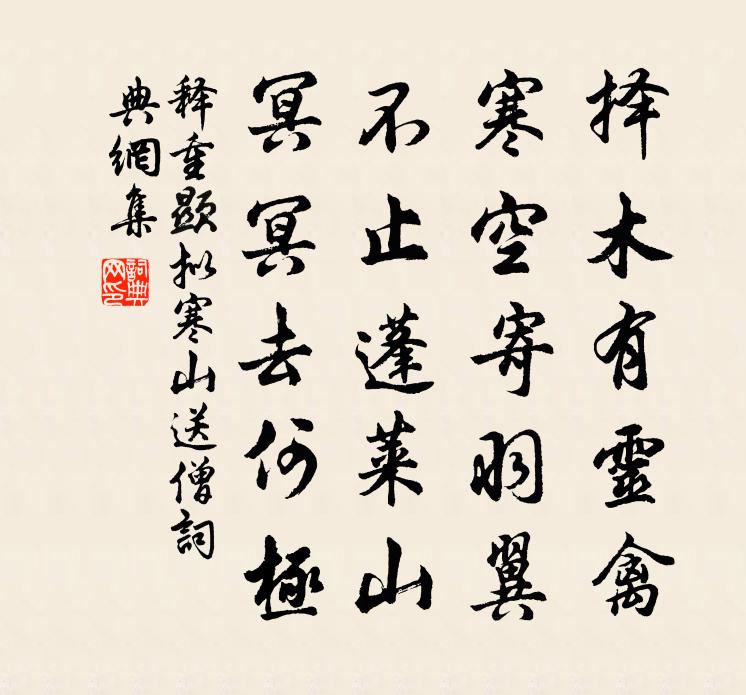 择木有靈禽
寒空寄羽翼
不止蓬莱山
冥冥去何極
释重顯拟寒山送僧詞
典網集
詞典
网印